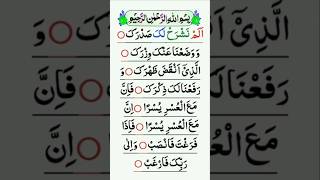 بِسْمِ اللّٰهِ الرَّحْمٰنِ الرَّحِيْمِ
اَلَمْ نَشْرَحْ لَکَ صَدْرَکَ
وَ وَضَعْنَا عَنْکَ وِزْرَکَ
الَّذِیْۤ اَنْقَضَ ظَهْرَکَ وَ
رَفَعْنَا لَکَ ذِکْرَکَ فَاِنَّ
مَعَ الْعُسْرِ یُسْرًا اِنَّ
مَعَ الْعُسْرِ یُسْرًا فَاِذَا
فَرَغْتَ فَانْصَبْ وَاِلٰی
رَبِّکَ فَارْغَبْ